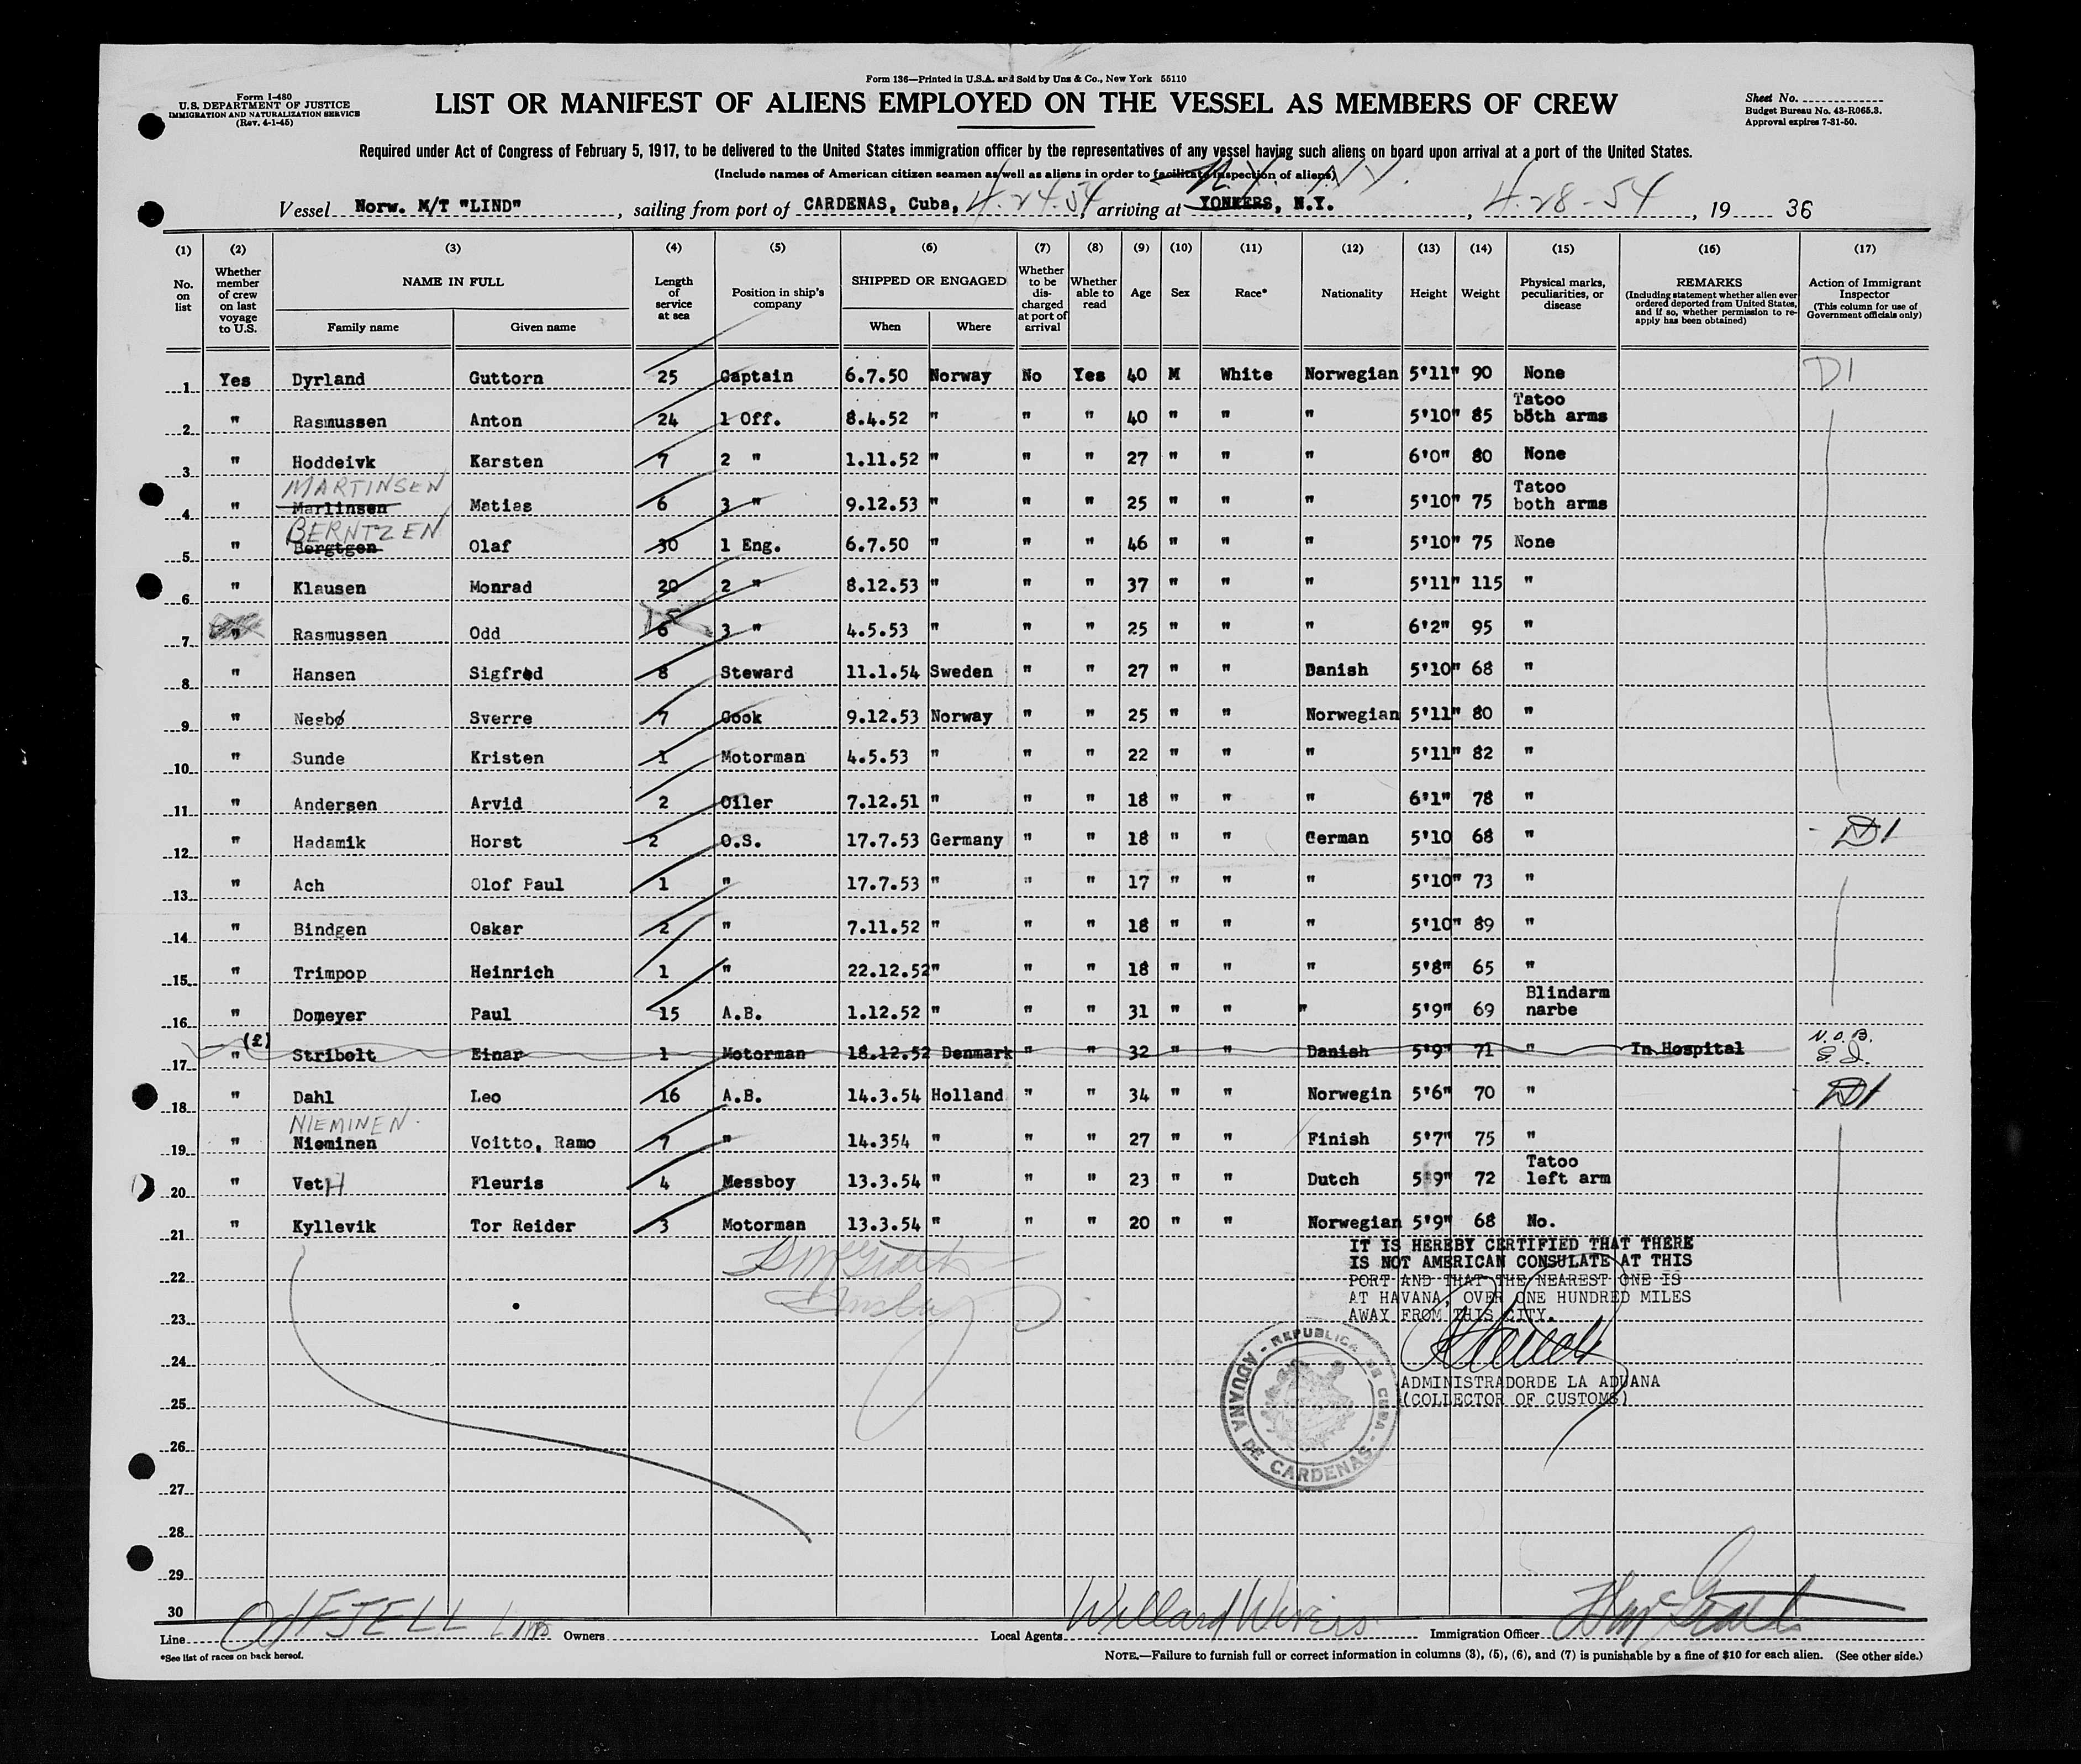 Form 136—Printed in U.S.A. and Sold by Unz & Co., New York 55110
Form I-480
U.S. DEPARTMENT OF JUSTICE
IMMIGRATION AND NATURALIZATION SERVICE
(Rev. 4-1-45)
LIST OR MANIFEST OF ALIENS EMPLOYED ON THE VESSEL AS MEMBERS OF CREW
Sheet No.
Budget Bureau No. 43-R065.3.
Approval expires 7-31-50.
Required under Act of Congress of February 5, 1917, to be delivered to the United States immigration officer by the representatives of any vessel having such aliens on board upon arrival at a port of the United States.
(Include names of American citizen seamen as well as aliens in order to facilitate inspection of aliens)
N.Y. N.Y.
Vessel Norw. M/T "LIND", sailing from port of CARDENAS, Cuba, 4.24.54, arriving at YONKERS, N.Y., 4-28-54, 19 36
(1) (2) (3) (4) (5) (6) (7) (8) (9) (10) (11) (12) (13) (14) (15) (16) (17)
No. on list
Whether member of crew on last voyage to U.S.
NAME IN FULL
Family name
Given name
Length of service at sea
Position in ship's company
SHIPPED OR ENGAGED
When
Where
Whether to be discharged at port of arrival
Whether able to read
Age
Sex
Race*
Nationality
Height
Weight
Physical marks, peculiarities, or disease
REMARKS
(Including statement whether alien ever ordered deported from United States, and if so, whether permission to reapply has been obtained)
Action of Immigrant Inspector
(This column for use of Government officials only)
1 Yes Dyrland Guttorn 25 Captain 6.7.50 Norway No Yes 40 M White Norwegian 5'11" 90 None D1
2 " Rasmussen Anton 24 1 Off. 8.4.52 " " " 40 " " " 5'10" 85 Tatoo both arms
3 " Hoddeivk Karsten 7 2 " 1.11.52 " " " 27 " " " 6'0" 80 None
MARTINSEN
4 " Marlinsen Matias 6 3 " 9.12.53 " " " 25 " " " 5'10" 75 Tatoo both arms
BERNTZEN
5 " Bergtgen Olaf 30 1 Eng. 6.7.50 " " " 46 " " " 5'10" 75 None
6 " Klausen Monrad 20 2 " 8.12.53 " " " 37 " " " 5'11" 115 "
7 " Rasmussen Odd 6 3 " 4.5.53 " " " 25 " " " 6'2" 95 "
8 " Hansen Sigfred 8 Steward 11.1.54 Sweden " " 27 " " Danish 5'10" 68 "
9 " Nesbø Sverre 7 Cook 9.12.53 Norway " " 25 " " Norwegian 5'11" 80 "
10 " Sunde Kristen 1 Motorman 4.5.53 " " " 22 " " " 5'11" 82 "
11 " Andersen Arvid 2 Oiler 7.12.51 " " " 18 " " " 6'1" 78 "
12 " Hadamik Horst 2 O.S. 17.7.53 Germany " " 18 " " German 5'10 68 " D1
13 " Ach Olof Paul 1 " 17.7.53 " " " 17 " " " 5'10" 73 "
14 " Bindgen Oskar 2 " 7.11.52 " " " 18 " " " 5'10" 89 "
15 " Trimpop Heinrich 1 " 22.12.52 " " " 18 " " " 5'8" 65 "
16 " Domeyer Paul 15 A.B. 1.12.52 " " " 31 " " " 5'9" 69 Blindarm narbe
17 (£) " Stribolt Einar 1 Motorman 18.12.52 Denmark " " 32 " " Danish 5'9" 71 " In Hospital N.O.B.
18 " Dahl Leo 16 A.B. 14.3.54 Holland " " 34 " " Norwegin 5'6" 70 " D1
NIEMINEN
19 " Nieminen Voitto, Ramo 7 " 14.354 " " " 27 " " Finish 5'7" 75 "
20 " VetH Fleuris 4 Messboy 13.3.54 " " " 23 " " Dutch 5'9" 72 Tatoo left arm
21 " Kyllevik Tor Reider 3 Motorman 13.3.54 " " " 20 " " Norwegian 5'9" 68 No.
IT IS HEREBY CERTIFIED THAT THERE
IS NOT AMERICAN CONSULATE AT THIS
PORT AND THAT THE NEAREST ONE IS
AT HAVANA, OVER ONE HUNDRED MILES
AWAY FROM THIS CITY.
ADMINISTRADORDE LA ADUANA
(COLLECTOR OF CUSTOMS)
REPUBLICA DE CUBA - ADUANA DE CARDENAS -
22
23
24
25
26
27
28
29
30
Line ODFJELL Line Owners Local Agents Willard Wivers Immigration Officer
*See list of races on back hereof.
NOTE.—Failure to furnish full or correct information in columns (3), (5), (6), and (7) is punishable by a fine of $10 for each alien. (See other side.)